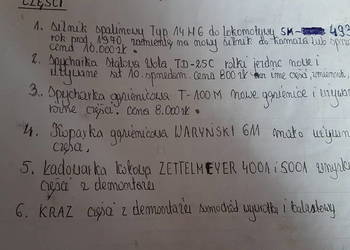 CZĘŚCI
1. Silnik spalinowy Typ 14H6 do lokomotywy SM- 493
rok prod. 1970. zamienię na nowy silnik do kamaza lub
cena 10.000zł.
2. Spycharka Stalowa Wola T.D-25C rolki jezdne nowe i
używane szt 10. sprzedam. cena 800zł inne części, zmienniki
3. Spycharka gąsienicowa T-100M nowe gąsienice i używane
różne części. cena 8.000zł.
4. Koparka gąsienicowa WARYŃSKI 611 mało używane
części.
5. Ładowarka kołowa ZETTELMEYER 4001 i 5001
części z demontażu
6. KRAZ części z demontażu samochód wywrotka i balastowy